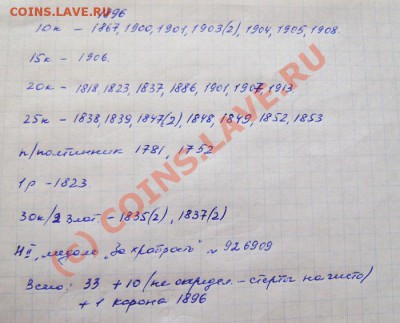 COINS.LAVE.RU
1896
10к – 1867, 1900, 1901, 1903(2), 1904, 1905, 1908.
15к – 1906.
20к – 1818, 1823, 1837, 1886, 1901, 1907, 1913
25к – 1838, 1839, 1847(2), 1848, 1849, 1852, 1853
п/полтинник 1781, 1752
1р – 1823
30к/2 злот – 1835(2), 1837(2)
медаль „За храбрость" № 926909
Всего: 33 + 10 (не определ. – стёрты начисто)
+ 1 корона 1896
(C) COINS.LAVE.RU